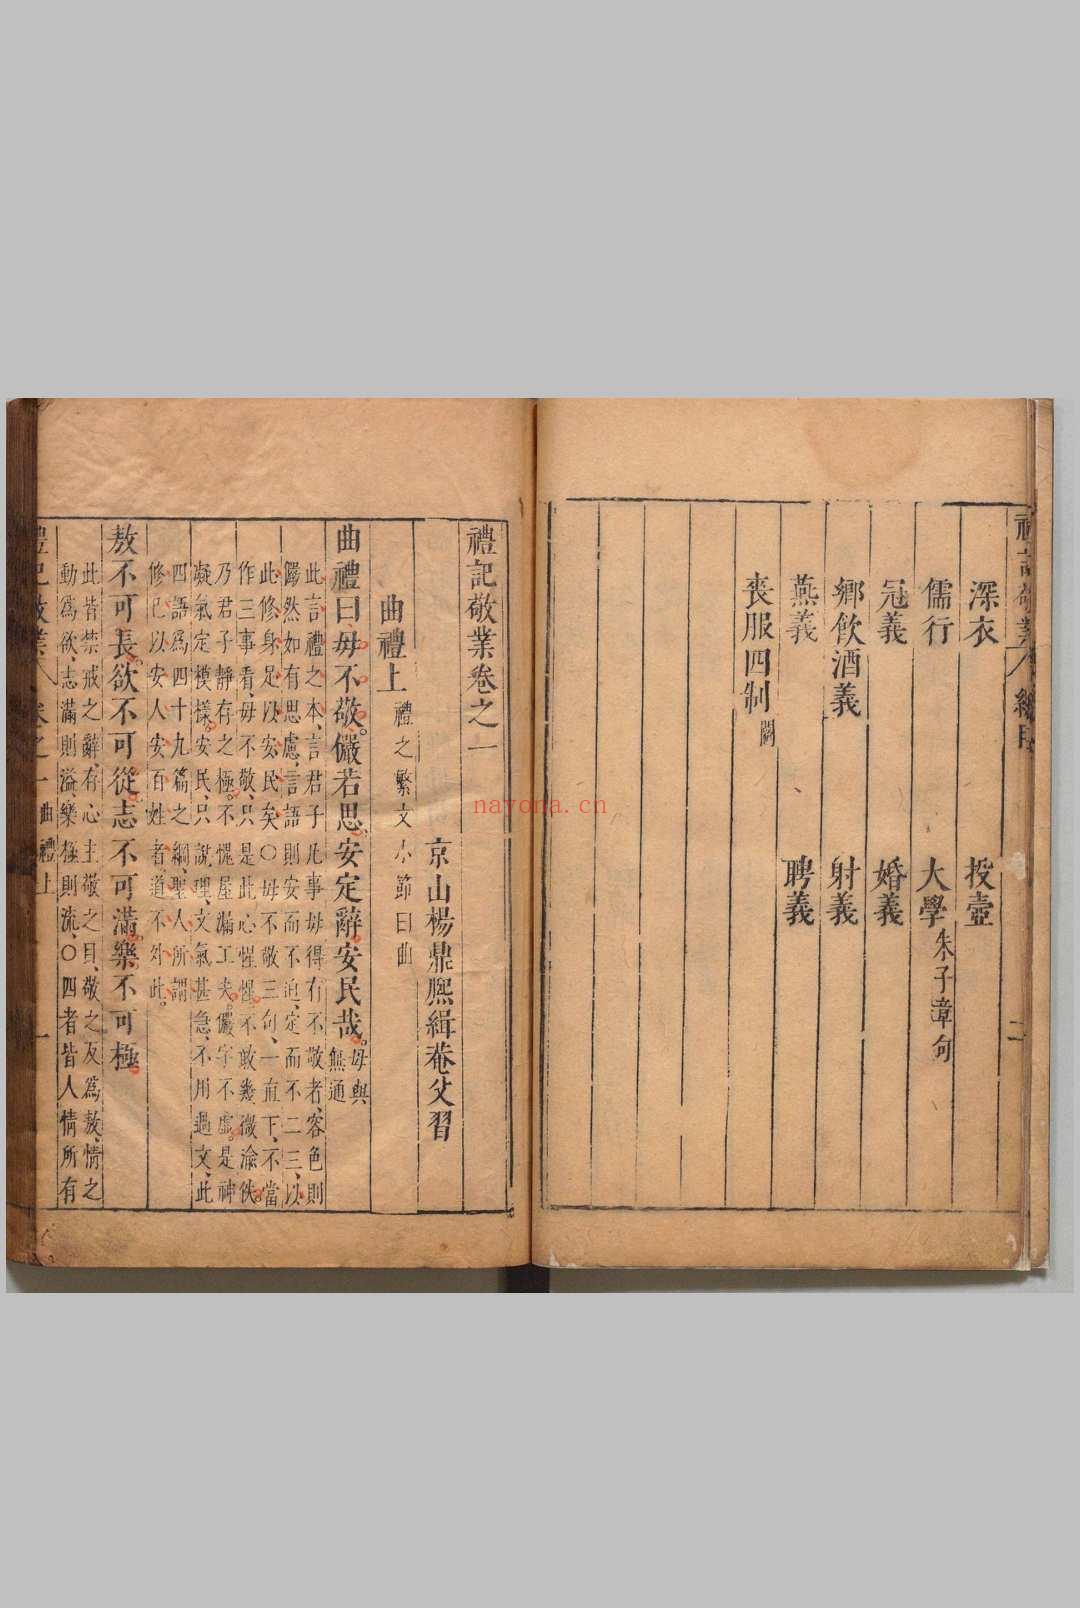 深衣　投壺
儒行　大學朱子章句
冠義　婚義
鄉飲酒義　射義
燕義　聘義
喪服四制闕
二
禮記敬業卷之一
京山楊鼎熙緝菴父習
曲禮上禮之繁文小節曰曲
曲禮曰毋不敬儼若思安定辭安民哉毋與
無通
此言禮之本言君子凡事毋得有不敬者容色則
儼然如有思慮言語則安而不迫定而不二三以
此修身足以安民矣○毋不敬三句一直下不當
作三事看毋不敬只是此心惺惺不敢幾微渝佚
乃君子靜有之極不愧屋漏工夫儼字不虛是神
凝氣定模樣安民只說理文氣甚急不用過文此
四語爲四十九篇之綱聖人所謂
修已以安人安百姓者道不外此
敖不可長欲不可從志不可滿樂不可極
此皆禁戒之辭有心主敬之目敬之反爲敖情之
動爲欲志滿則溢樂極則流○四者皆人情所有
曲禮上
一
nayona.cn